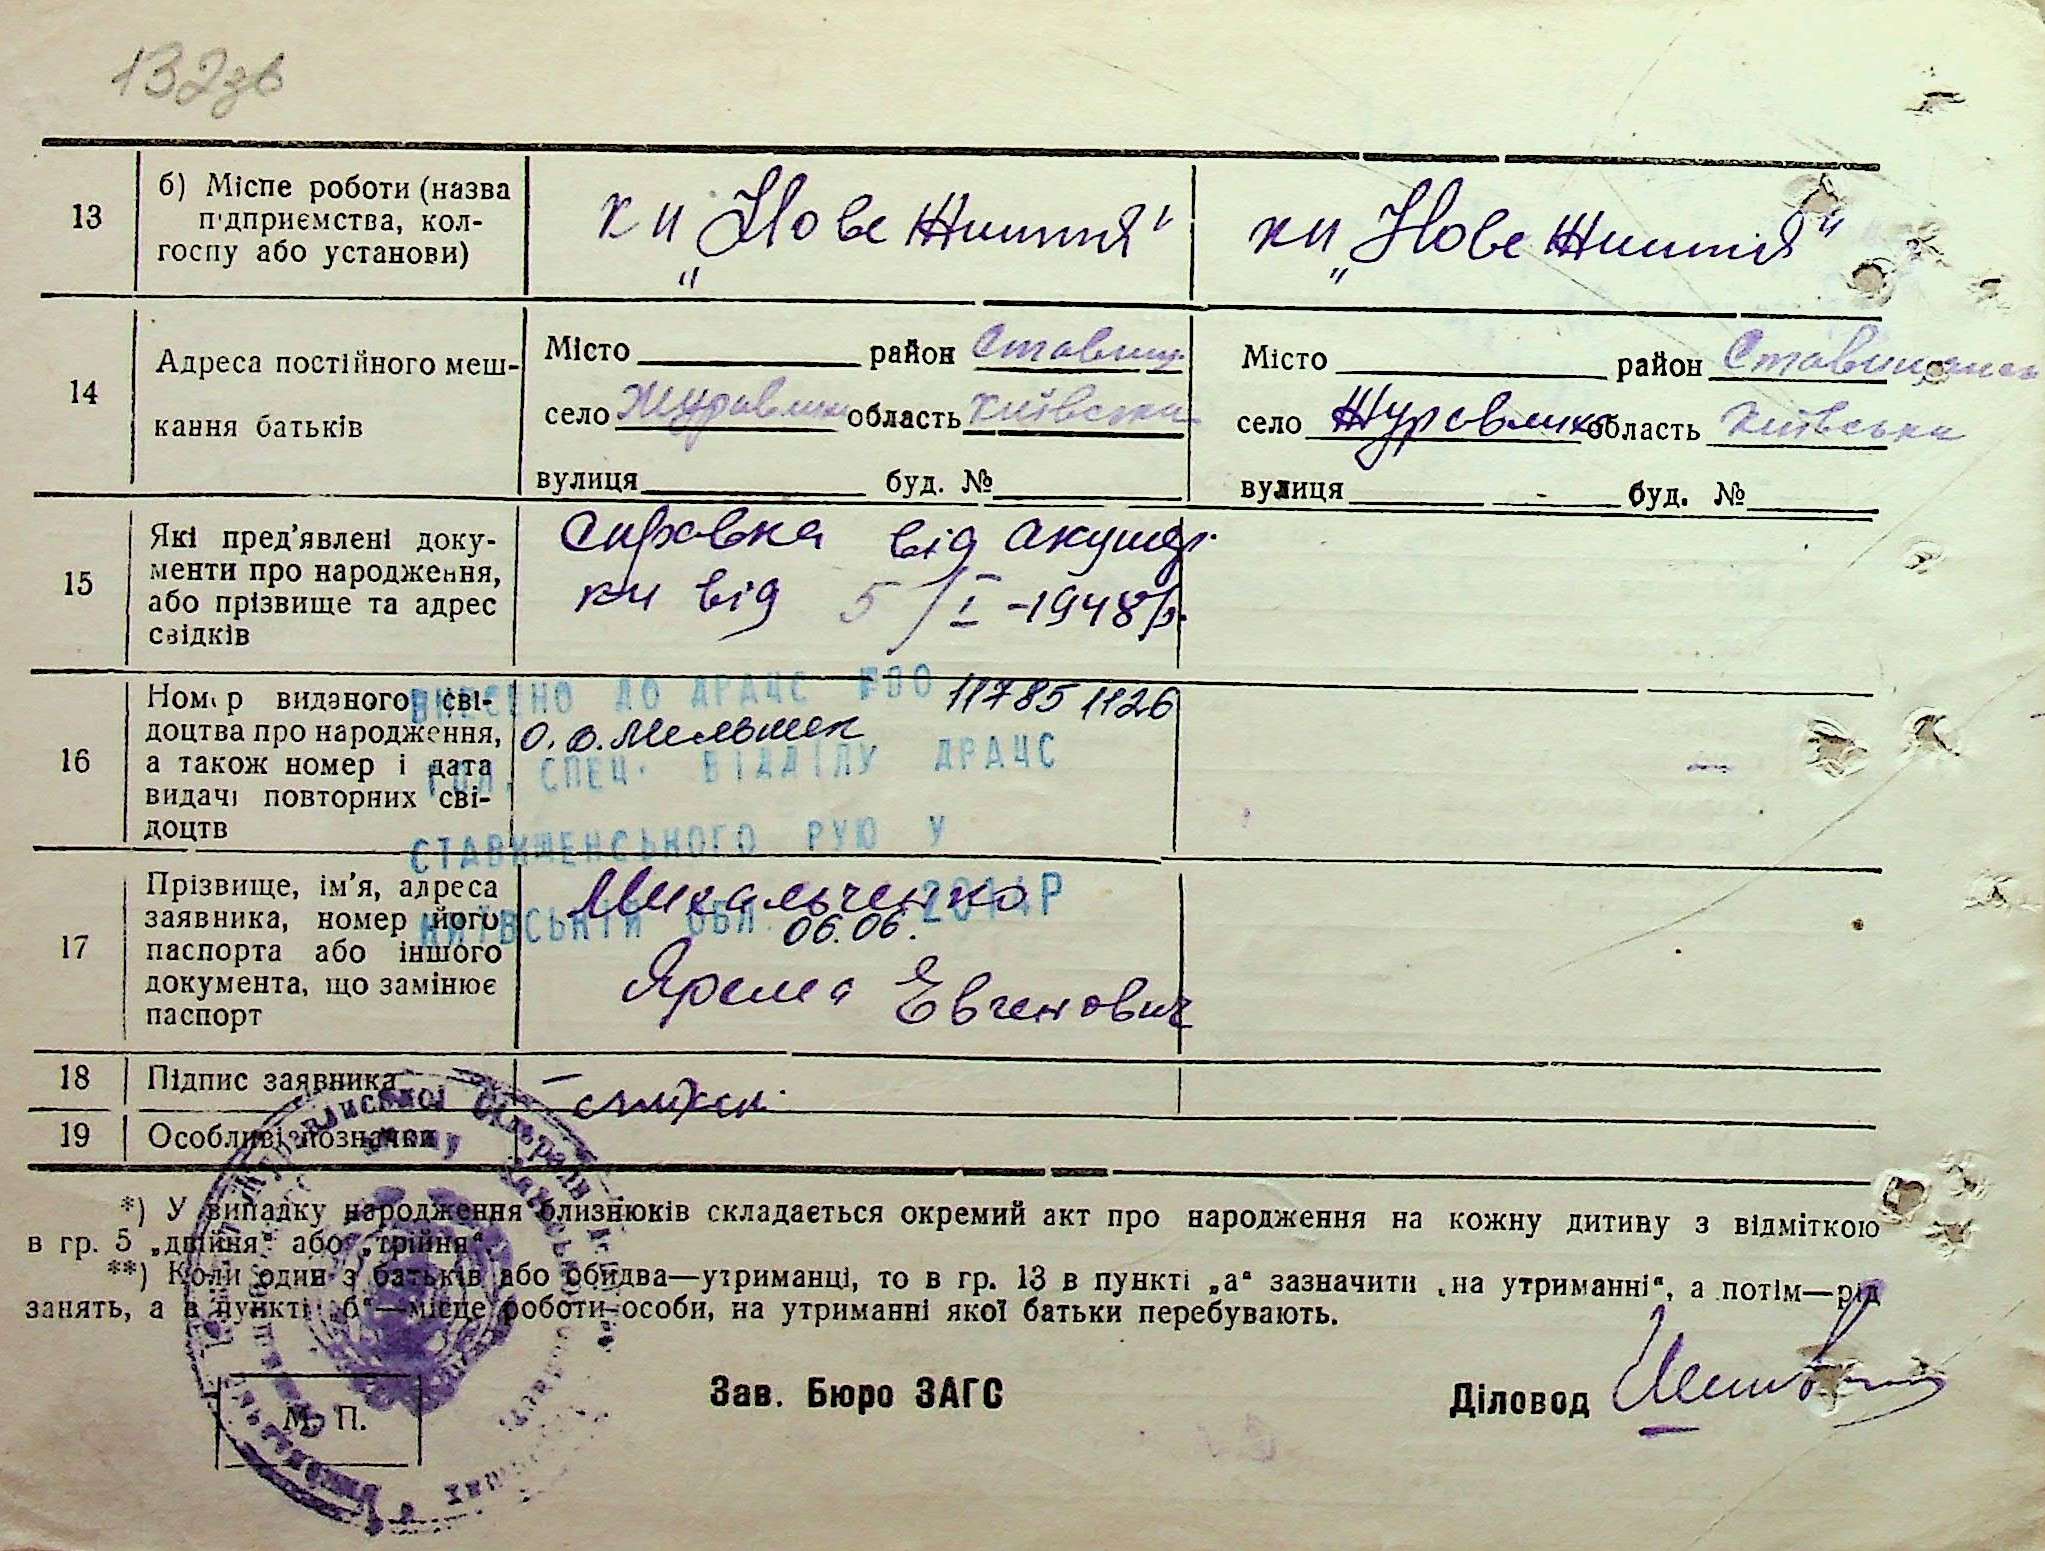 132зв
13
б) Місце роботи (назва
підприємства, кол-
госпу або установи)
к и „Нове Життя"
ки „Нове Життя"
14
Адреса постійного меш-
кання батьків
Місто район Ставищ.
село Журавлиха область Київська
вулиця буд. №
Місто район Ставищанськ
село Журавлиха область Київська
вулиця буд. №
15
Які пред'явлені доку-
менти про народження,
або прізвище та адрес
свідків
Справка від акушер-
ки від 5/I-1948р.
16
Номер виданого сві-
доцтва про народження,
а також номер і дата
видачі повторних сві-
доцтв
ВНЕСЕНО ДО ДРАЦС 11785 1126
О. О. Мельник
ГОЛ. СПЕЦ. ВІДДІЛУ ДРАЦС
СТАВИЩЕНСЬКОГО РУЮ У
КИЇВСЬКІЙ ОБЛ. 06.06. 2014Р
17
Прізвище, ім'я, адреса
заявника, номер його
паспорта або іншого
документа, що замінює
паспорт
Михальченко
Ярема Евгенович
18
Підпис заявника
19
Особливі позначки
*) У випадку народження близнюків складається окремий акт про народження на кожну дитину з відміткою
в гр. 5 „двійня" або „трійня".
**) Коли один з батьків або обидва—утриманці, то в гр. 13 в пункті „а" зазначити „на утриманні", а потім—рід
занять, а в пункті „б"—місце роботи особи, на утриманні якої батьки перебувають.
М. П.
Зав. Бюро ЗАГС
Діловод